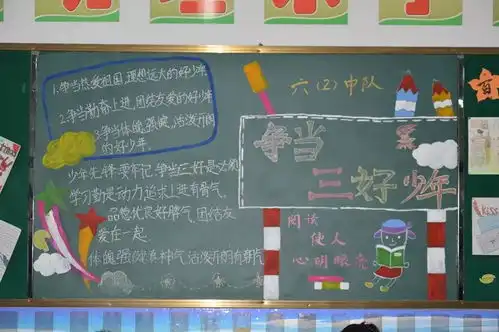 1.争当热爱祖国,理想远大的好少年
2.争当勤奋上进,团结友爱的好少年
3.争当体魄强健,活泼开朗
的好少年
少年先锋要牢记,争当三好是必须
学习勤是动力,追求上进有骨气,
品德优良好脾气,团结友
爱在一起
体魄强健有神气,活泼开朗有朝气
六(2)中队
争当
三好少年
阅读
使人
心明眼亮